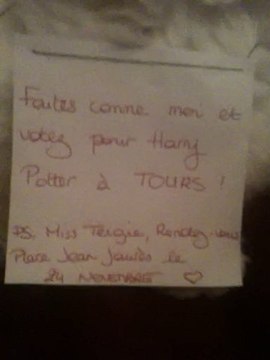 Faites comme moi et
votez pour Harry
Potter à TOURS !
PS, Miss Teigne, Rendez-vous
Place Jean Jaurès le
24 NOVEMBRE ♡